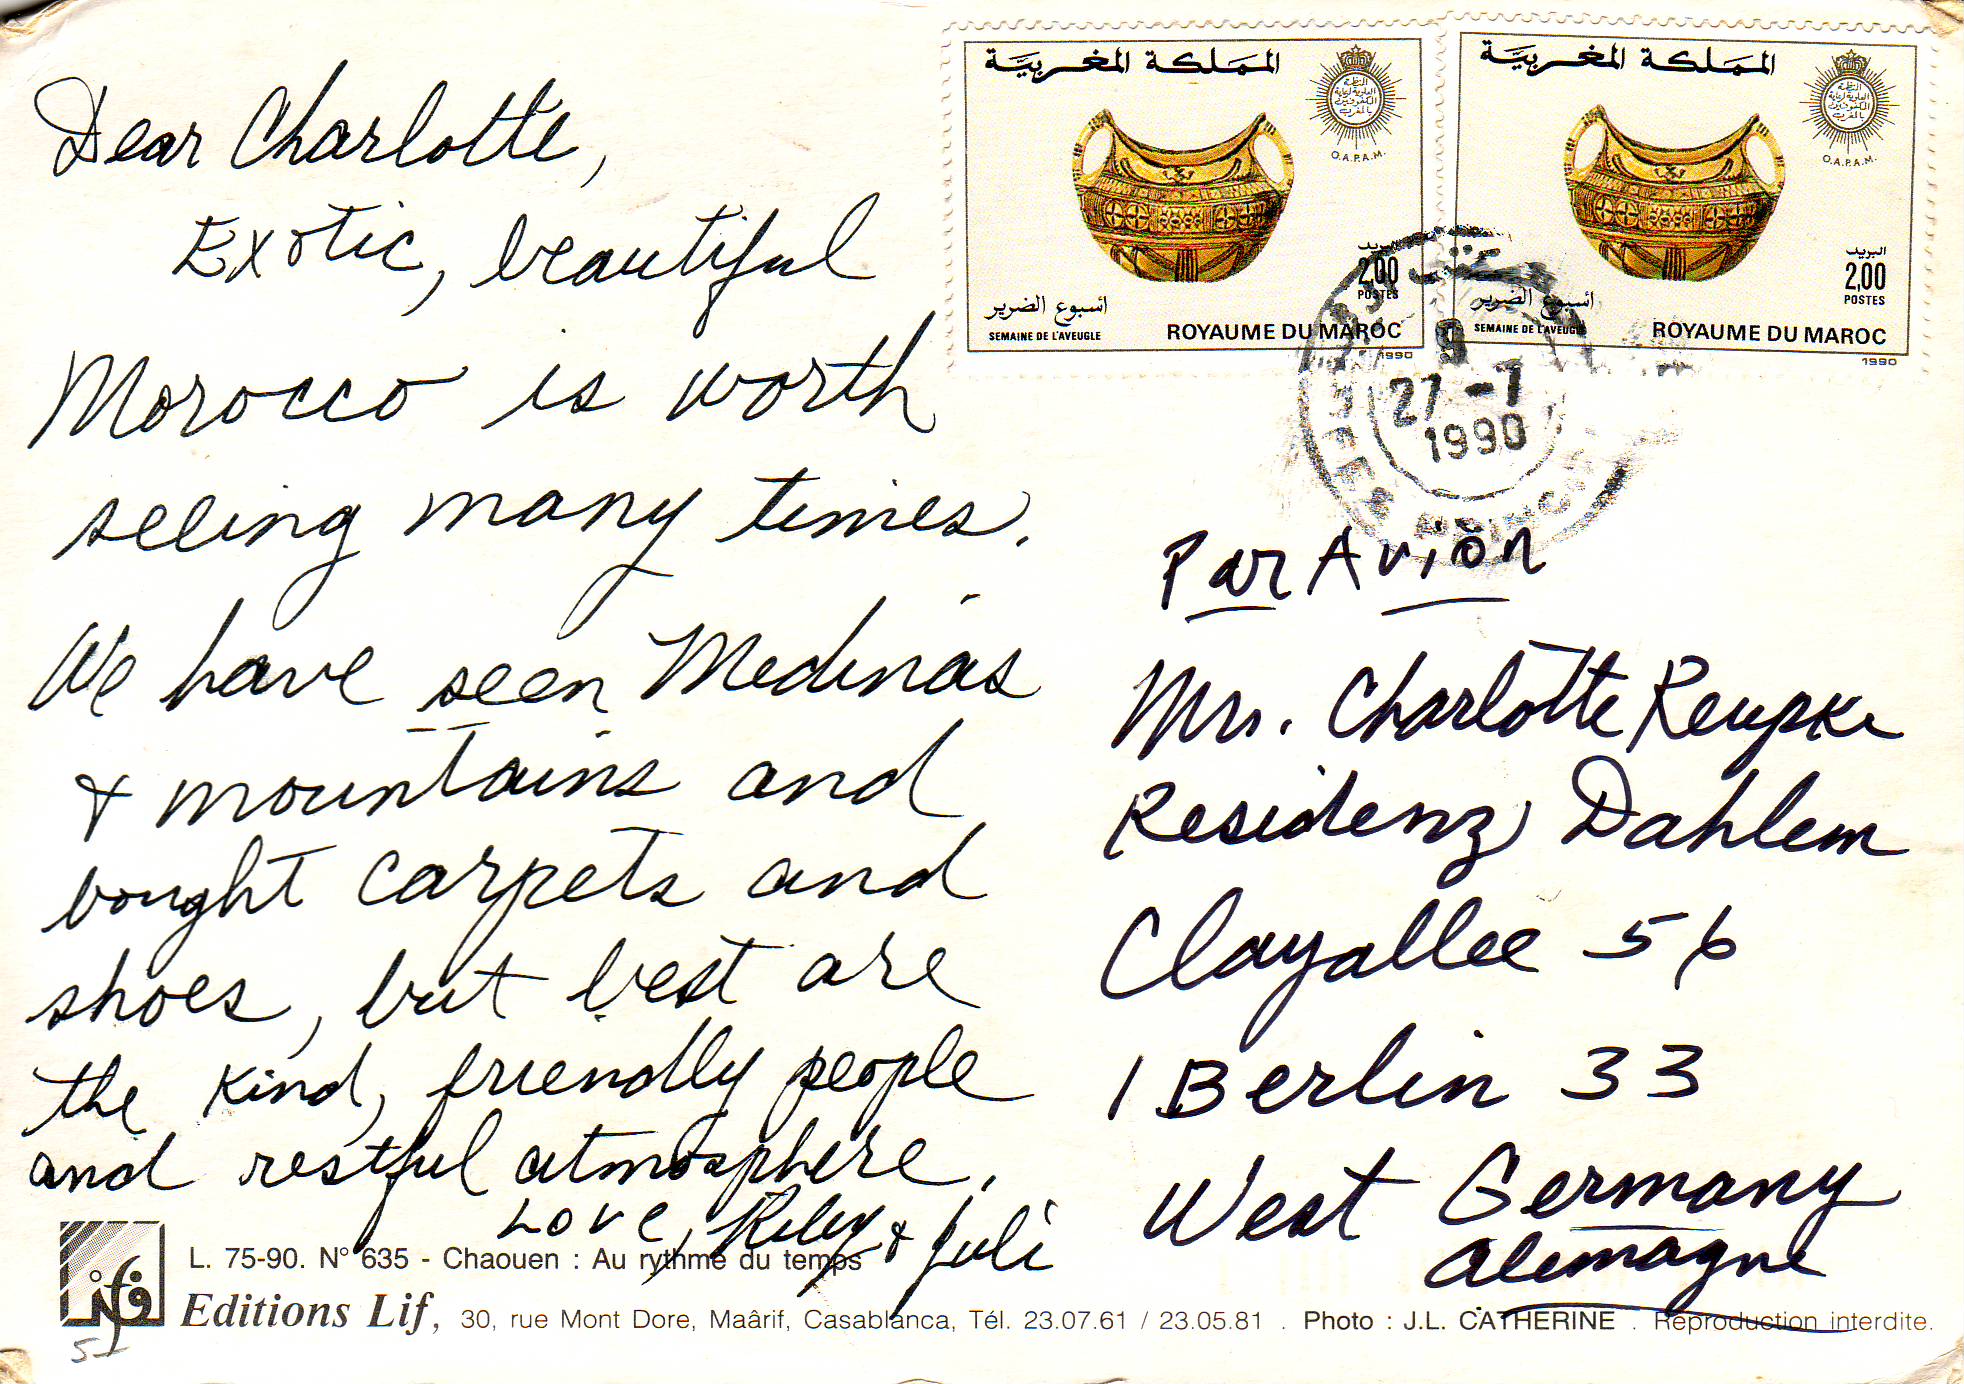 Dear Charlotte,
Exotic, beautiful
Morocco is worth
seeing many times.
We have seen Medinas
& mountains and
bought carpets and
shoes, but best are
the kind, friendly people
and restful atmosphere.
Love, Riley & Juli
المملكة المغربية
المنظمة
العلوية لرعاية
المكفوفين
بالمغرب
O.A.P.A.M.
البريد
2,00
POSTES
اسبوع الضرير
SEMAINE DE L'AVEUGLE
ROYAUME DU MAROC
1990
المملكة المغربية
المنظمة
العلوية لرعاية
المكفوفين
بالمغرب
O.A.P.A.M.
البريد
2,00
POSTES
اسبوع الضرير
SEMAINE DE L'AVEUGLE
ROYAUME DU MAROC
1990
9
27 -7
1990
Par Avion
Mrs. Charlotte Reupke
Residenz Dahlem
Clayallee 56
1 Berlin 33
West Germany
Alemagne
L. 75-90. N° 635 - Chaouen : Au rythme du temps
Editions Lif, 30, rue Mont Dore, Maârif, Casablanca, Tél. 23.07.61 / 23.05.81 . Photo : J.L. CATHERINE . Reproduction interdite.